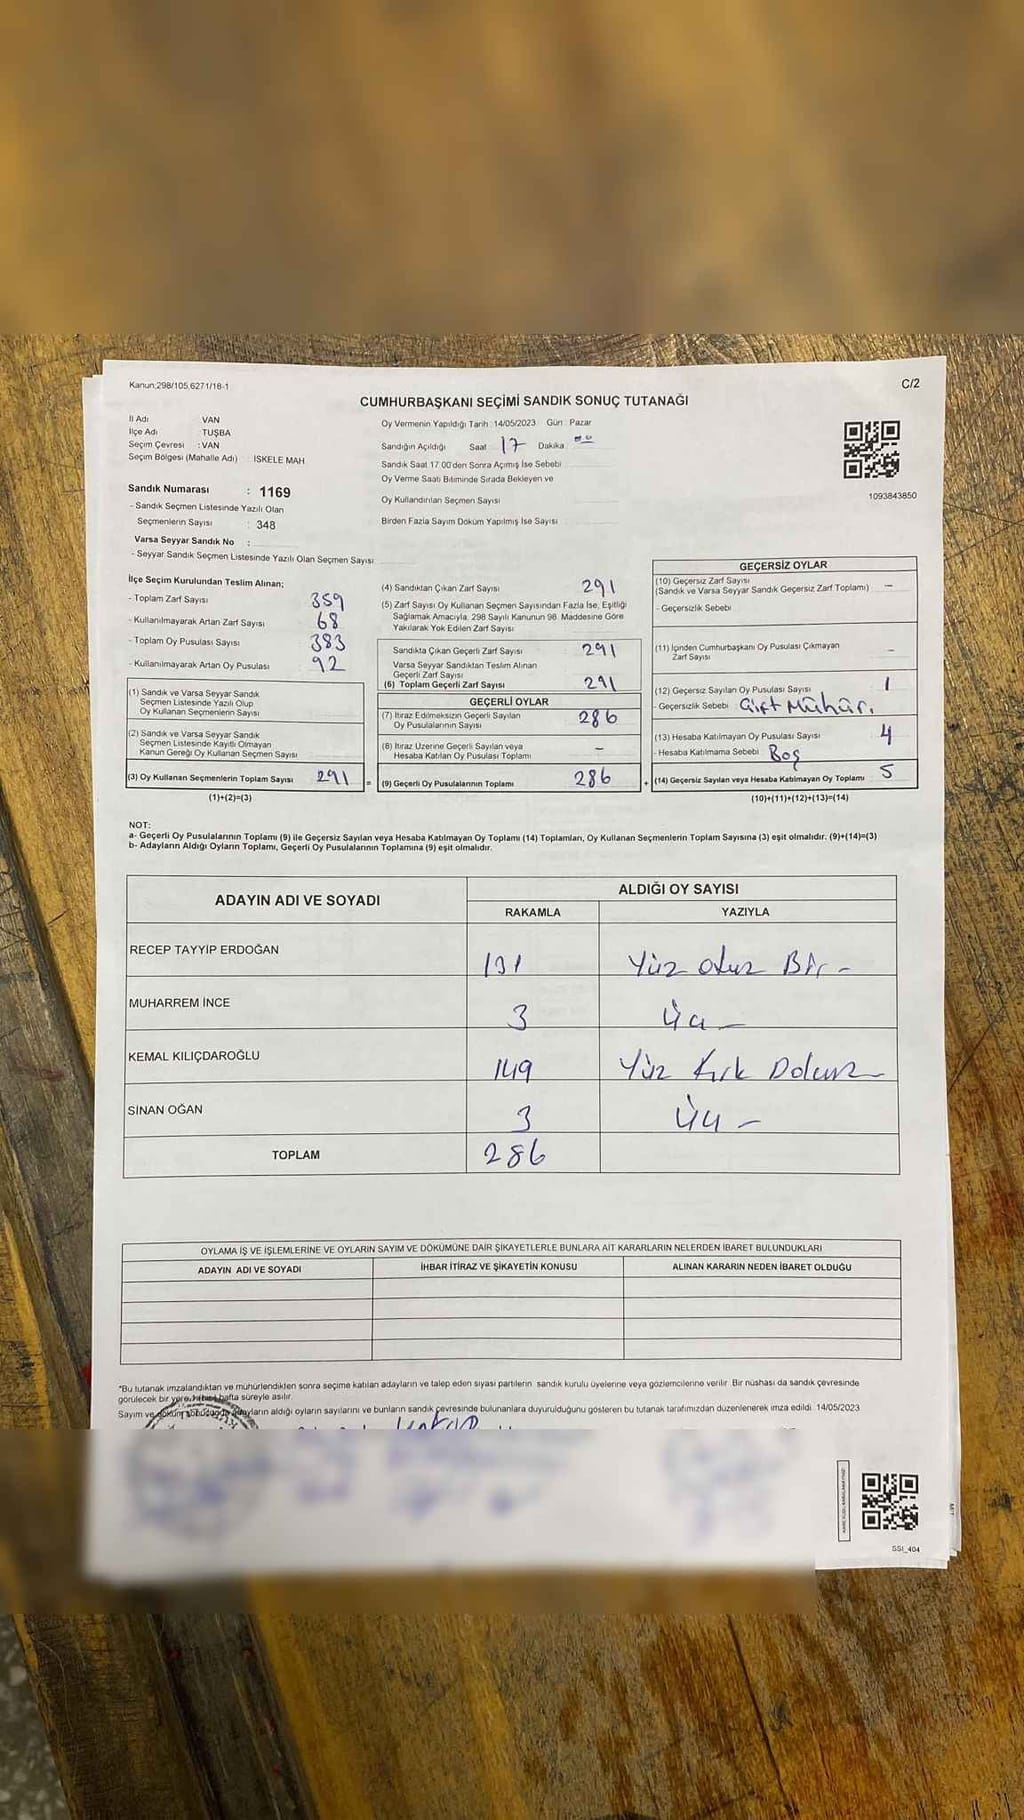 Kanun;298/105,6271/18-1
C/2
CUMHURBAŞKANI SEÇİMİ SANDIK SONUÇ TUTANAĞI
İl Adı : VAN
İlçe Adı : TUŞBA
Seçim Çevresi : VAN
Seçim Bölgesi (Mahalle Adı) : İSKELE MAH
Sandık Numarası : 1169
- Sandık Seçmen Listesinde Yazılı Olan
Seçmenlerin Sayısı : 348
Varsa Seyyar Sandık No :
- Seyyar Sandık Seçmen Listesinde Yazılı Olan Seçmen Sayısı
Oy Vermenin Yapıldığı Tarih :14/05/2023 Gün : Pazar
Sandığın Açıldığı Saat 17 Dakika 00
Sandık Saat 17.00'den Sonra Açımış İse Sebebi
Oy Verme Saati Bitiminde Sırada Bekleyen ve
Oy Kullandırılan Seçmen Sayısı
Birden Fazla Sayım Döküm Yapılmış İse Sayısı
1093843850
İlçe Seçim Kurulundan Teslim Alınan;
- Toplam Zarf Sayısı 359
- Kullanılmayarak Artan Zarf Sayısı 68
- Toplam Oy Pusulası Sayısı 383
- Kullanılmayarak Artan Oy Pusulası 92
(1) Sandık ve Varsa Seyyar Sandık
Seçmen Listesinde Yazılı Olup
Oy Kullanan Seçmenlerin Sayısı
(2) Sandık ve Varsa Seyyar Sandık
Seçmen Listesinde Kayıtlı Olmayan
Kanun Gereği Oy Kullanan Seçmen Sayısı
(3) Oy Kullanan Seçmenlerin Toplam Sayısı 291
(1)+(2)=(3)
(4) Sandıktan Çıkan Zarf Sayısı 291
(5) Zarf Sayısı Oy Kullanan Seçmen Sayısından Fazla İse, Eşitliği
Sağlamak Amacıyla, 298 Sayılı Kanunun 98. Maddesine Göre
Yakılarak Yok Edilen Zarf Sayısı
Sandıkta Çıkan Geçerli Zarf Sayısı 291
Varsa Seyyar Sandıktan Teslim Alınan
Geçerli Zarf Sayısı
(6) Toplam Geçerli Zarf Sayısı 291
GEÇERLİ OYLAR
(7) İtiraz Edilmeksizin Geçerli Sayılan
Oy Pusulalarının Sayısı 286
(8) İtiraz Üzerine Geçerli Sayılan veya
Hesaba Katılan Oy Pusulası Toplamı –
= (9) Geçerli Oy Pusulalarının Toplamı 286
GEÇERSİZ OYLAR
(10) Geçersiz Zarf Sayısı
(Sandık ve Varsa Seyyar Sandık Geçersiz Zarf Toplamı) –
- Geçersizlik Sebebi
(11) İçinden Cumhurbaşkanı Oy Pusulası Çıkmayan
Zarf Sayısı –
(12) Geçersiz Sayılan Oy Pusulası Sayısı 1
- Geçersizlik Sebebi Çift Mühür.
(13) Hesaba Katılmayan Oy Pusulası Sayısı 4
- Hesaba Katılmama Sebebi Boş
+ (14) Geçersiz Sayılan veya Hesaba Katılmayan Oy Toplamı 5
(10)+(11)+(12)+(13)=(14)
NOT:
a- Geçerli Oy Pusulalarının Toplamı (9) ile Geçersiz Sayılan veya Hesaba Katılmayan Oy Toplamı (14) Toplamları, Oy Kullanan Seçmenlerin Toplam Sayısına (3) eşit olmalıdır. (9)+(14)=(3)
b- Adayların Aldığı Oyların Toplamı, Geçerli Oy Pusulalarının Toplamına (9) eşit olmalıdır.
ADAYIN ADI VE SOYADI
ALDIĞI OY SAYISI
RAKAMLA YAZIYLA
RECEP TAYYİP ERDOĞAN 131 Yüz otuz Bir –
MUHARREM İNCE 3 Üç –
KEMAL KILIÇDAROĞLU 149 Yüz Kırk Dokuz –
SİNAN OĞAN 3 Üç –
TOPLAM 286
OYLAMA İŞ VE İŞLEMLERİNE VE OYLARIN SAYIM VE DÖKÜMÜNE DAİR ŞİKAYETLERLE BUNLARA AİT KARARLARIN NELERDEN İBARET BULUNDUKLARI
ADAYIN ADI VE SOYADI İHBAR İTİRAZ VE ŞİKAYETİN KONUSU ALINAN KARARIN NEDEN İBARET OLDUĞU
*Bu tutanak imzalandıktan ve mühürlendikten sonra seçime katılan adayların ve talep eden siyasi partilerin sandık kurulu üyelerine veya gözlemcilerine verilir. Bir nüshası da sandık çevresinde
görülecek bir yere hafta süreyle asılır.
Sayım ve döküm sonucunda adayların aldığı oyların sayılarını ve bunların sandık çevresinde bulunanlara duyurulduğunu gösteren bu tutanak tarafımızdan düzenlenerek imza edildi. 14/05/2023
SSI_404